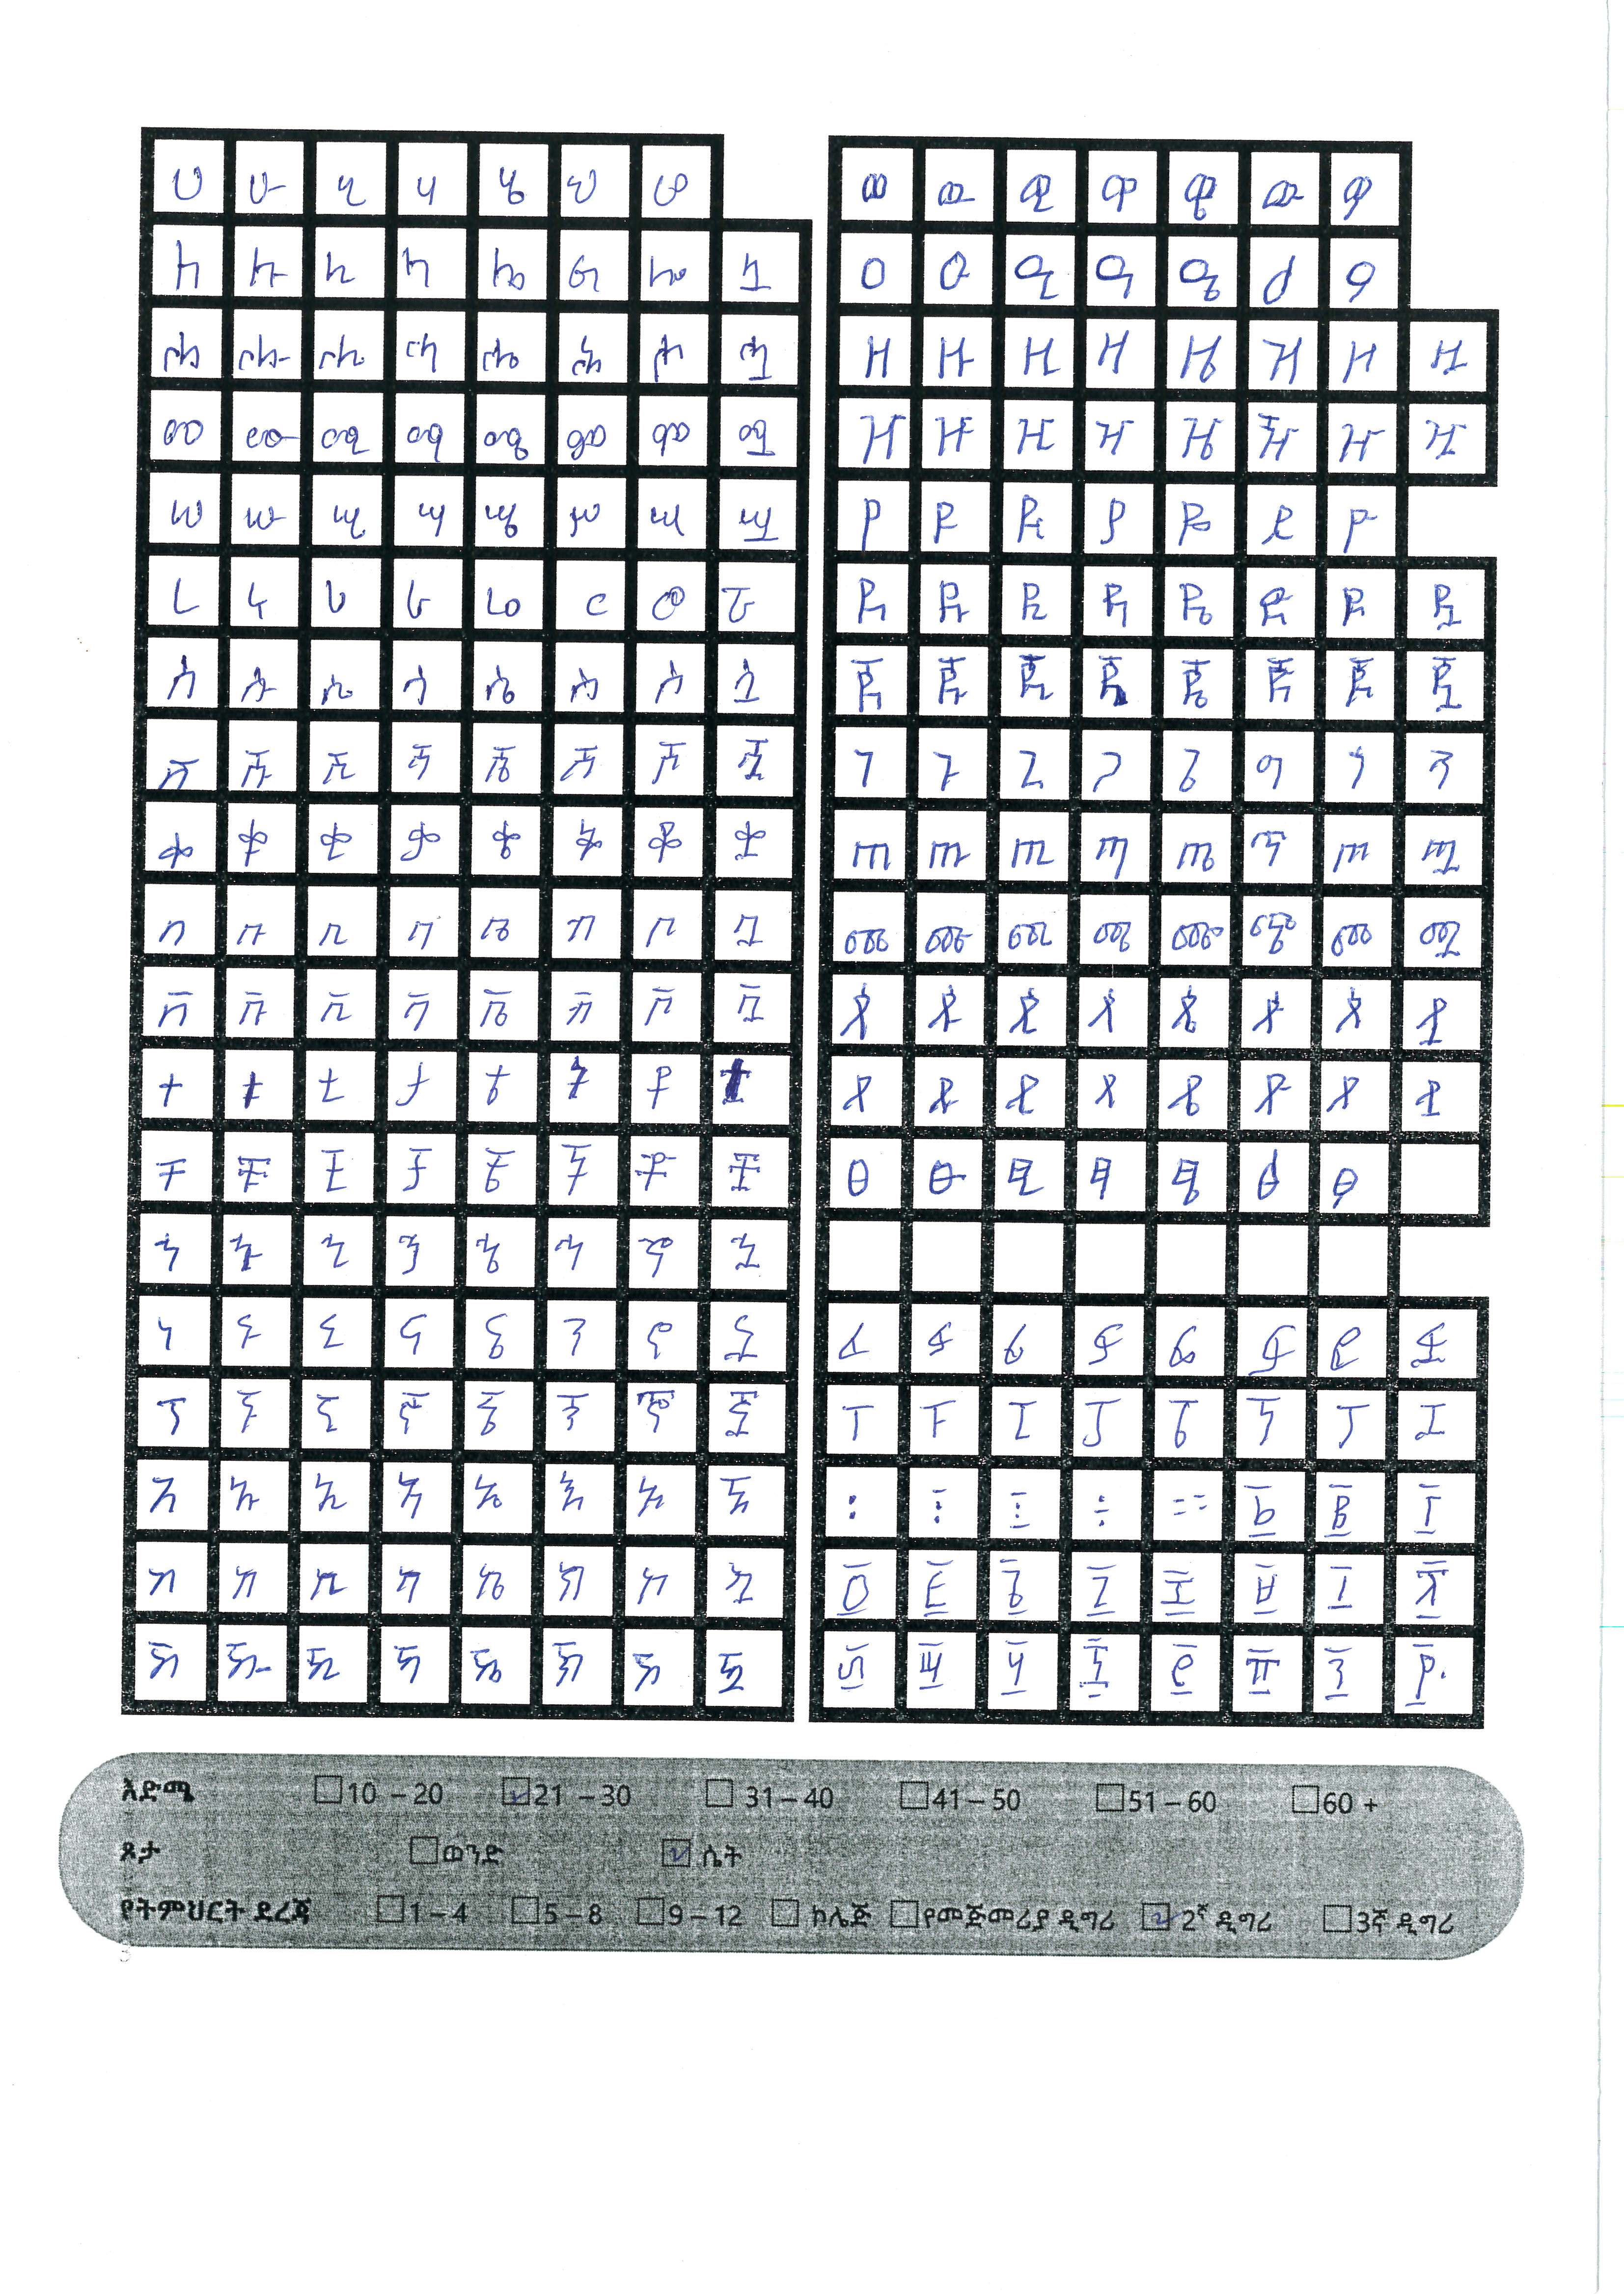 ሀ ሁ ሂ ሃ ሄ ህ ሆ
ለ ሉ ሊ ላ ሌ ል ሎ ሏ
ሐ ሑ ሒ ሓ ሔ ሕ ሖ ሗ
መ ሙ ሚ ማ ሜ ም ሞ ሟ
ሠ ሡ ሢ ሣ ሤ ሥ ሦ ሧ
ረ ሩ ሪ ራ ሬ ር ሮ ሯ
ሰ ሱ ሲ ሳ ሴ ስ ሶ ሷ
ሸ ሹ ሺ ሻ ሼ ሽ ሾ ሿ
ቀ ቁ ቂ ቃ ቄ ቅ ቆ ቋ
በ ቡ ቢ ባ ቤ ብ ቦ ቧ
ቨ ቩ ቪ ቫ ቬ ቭ ቮ ቯ
ተ ቱ ቲ ታ ቴ ት ቶ ቷ
ቸ ቹ ቺ ቻ ቼ ች ቾ ቿ
ኀ ኁ ኂ ኃ ኄ ኅ ኆ ኋ
ነ ኑ ኒ ና ኔ ን ኖ ኗ
ኘ ኙ ኚ ኛ ኜ ኝ ኞ ኟ
አ ኡ ኢ ኣ ኤ እ ኦ ኧ
ከ ኩ ኪ ካ ኬ ክ ኮ ኳ
ኸ ኹ ኺ ኻ ኼ ኽ ኾ ዃ
ወ ዉ ዊ ዋ ዌ ው ዎ
ዐ ዑ ዒ ዓ ዔ ዕ ዖ
ዘ ዙ ዚ ዛ ዜ ዝ ዞ ዟ
ዠ ዡ ዢ ዣ ዤ ዥ ዦ ዧ
የ ዩ ዪ ያ ዬ ይ ዮ
ደ ዱ ዲ ዳ ዴ ድ ዶ ዷ
ጀ ጁ ጂ ጃ ጄ ጅ ጆ ጇ
ገ ጉ ጊ ጋ ጌ ግ ጎ ጓ
ጠ ጡ ጢ ጣ ጤ ጥ ጦ ጧ
ጨ ጩ ጪ ጫ ጬ ጭ ጮ ጯ
ጰ ጱ ጲ ጳ ጴ ጵ ጶ ጷ
ጸ ጹ ጺ ጻ ጼ ጽ ጾ ጿ
ፀ ፁ ፂ ፃ ፄ ፅ ፆ
ፈ ፉ ፊ ፋ ፌ ፍ ፎ ፏ
ፐ ፑ ፒ ፓ ፔ ፕ ፖ ፗ
፡ ፩ ፪ ፫
፬ ፭ ፮ ፯ ፰ ፱ ፲ ፳
፴ ፵ ፶ ፷ ፸ ፹ ፺ ፻
እድሜ 10 – 20 21 – 30 31 – 40 41 – 50 51 – 60 60 +
ጾታ ወንድ ሴት
የትምህርት ደረጃ 1 – 4 5 – 8 9 – 12 ኮሌጅ የመጅመሪያ ዲግሪ 2ኛ ዲግሪ 3ኛ ዲግሪ